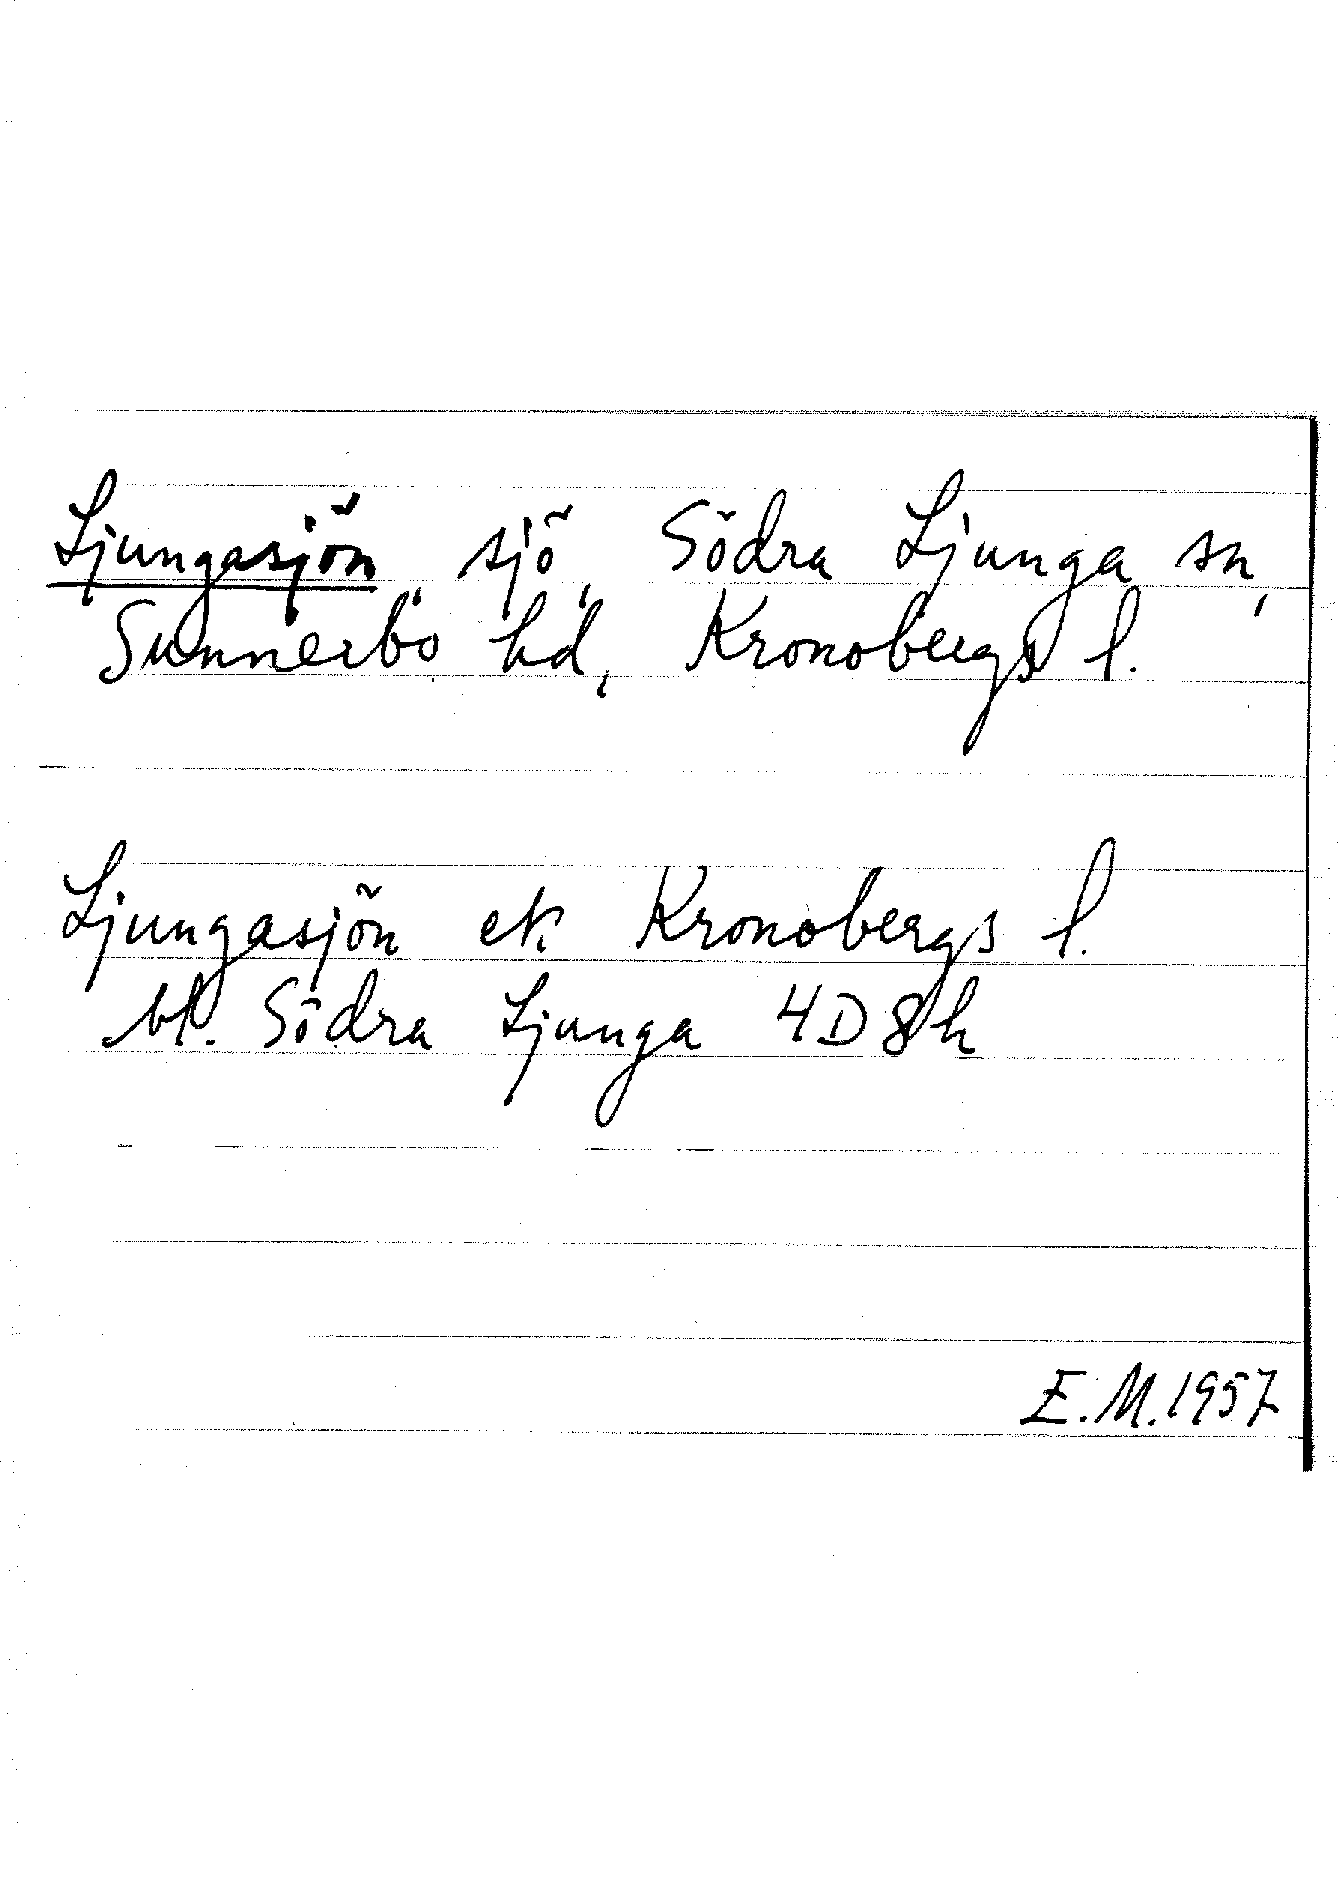 Ljungasjön, sjö, Södra Ljunga sn,
Sunnerbo hd, Kronobergs l.
Ljungasjön ek Kronobergs l.
bl. Södra Ljunga 4D8h
E.M.1957